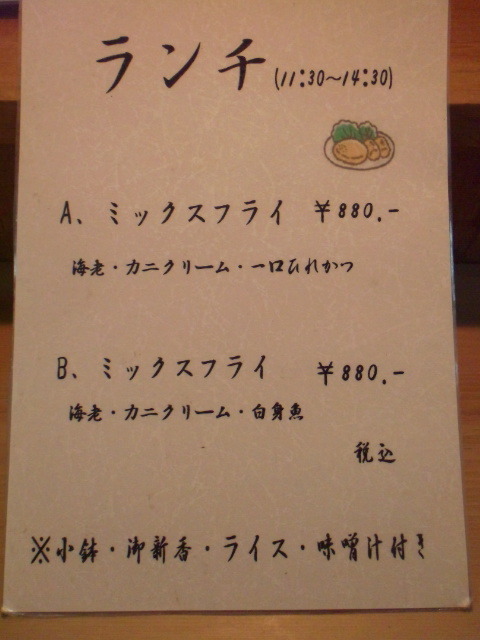 ランチ (11:30~14:30)
A、ミックスフライ ¥880.-
海老・カニクリーム・一口ひれかつ
B、ミックスフライ ¥880.-
海老・カニクリーム・白身魚
税込
※小鉢・御新香・ライス・味噌汁付き